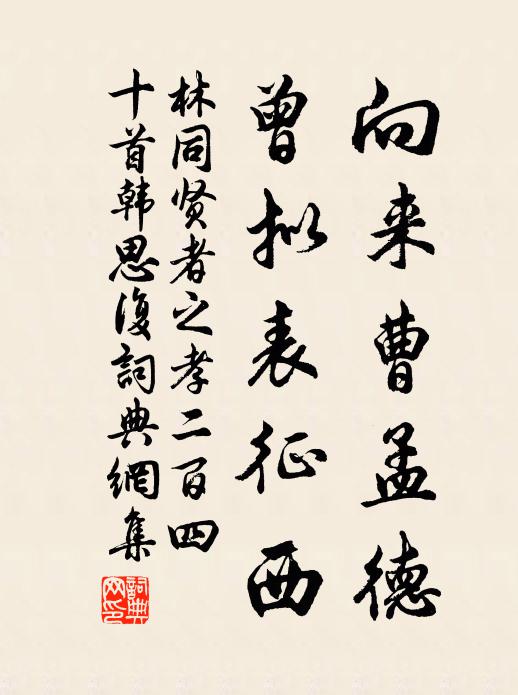 向来曹孟德
曾拟表征西
林同贤者之孝二百四
十首韩思復詞典網集
詞典網印